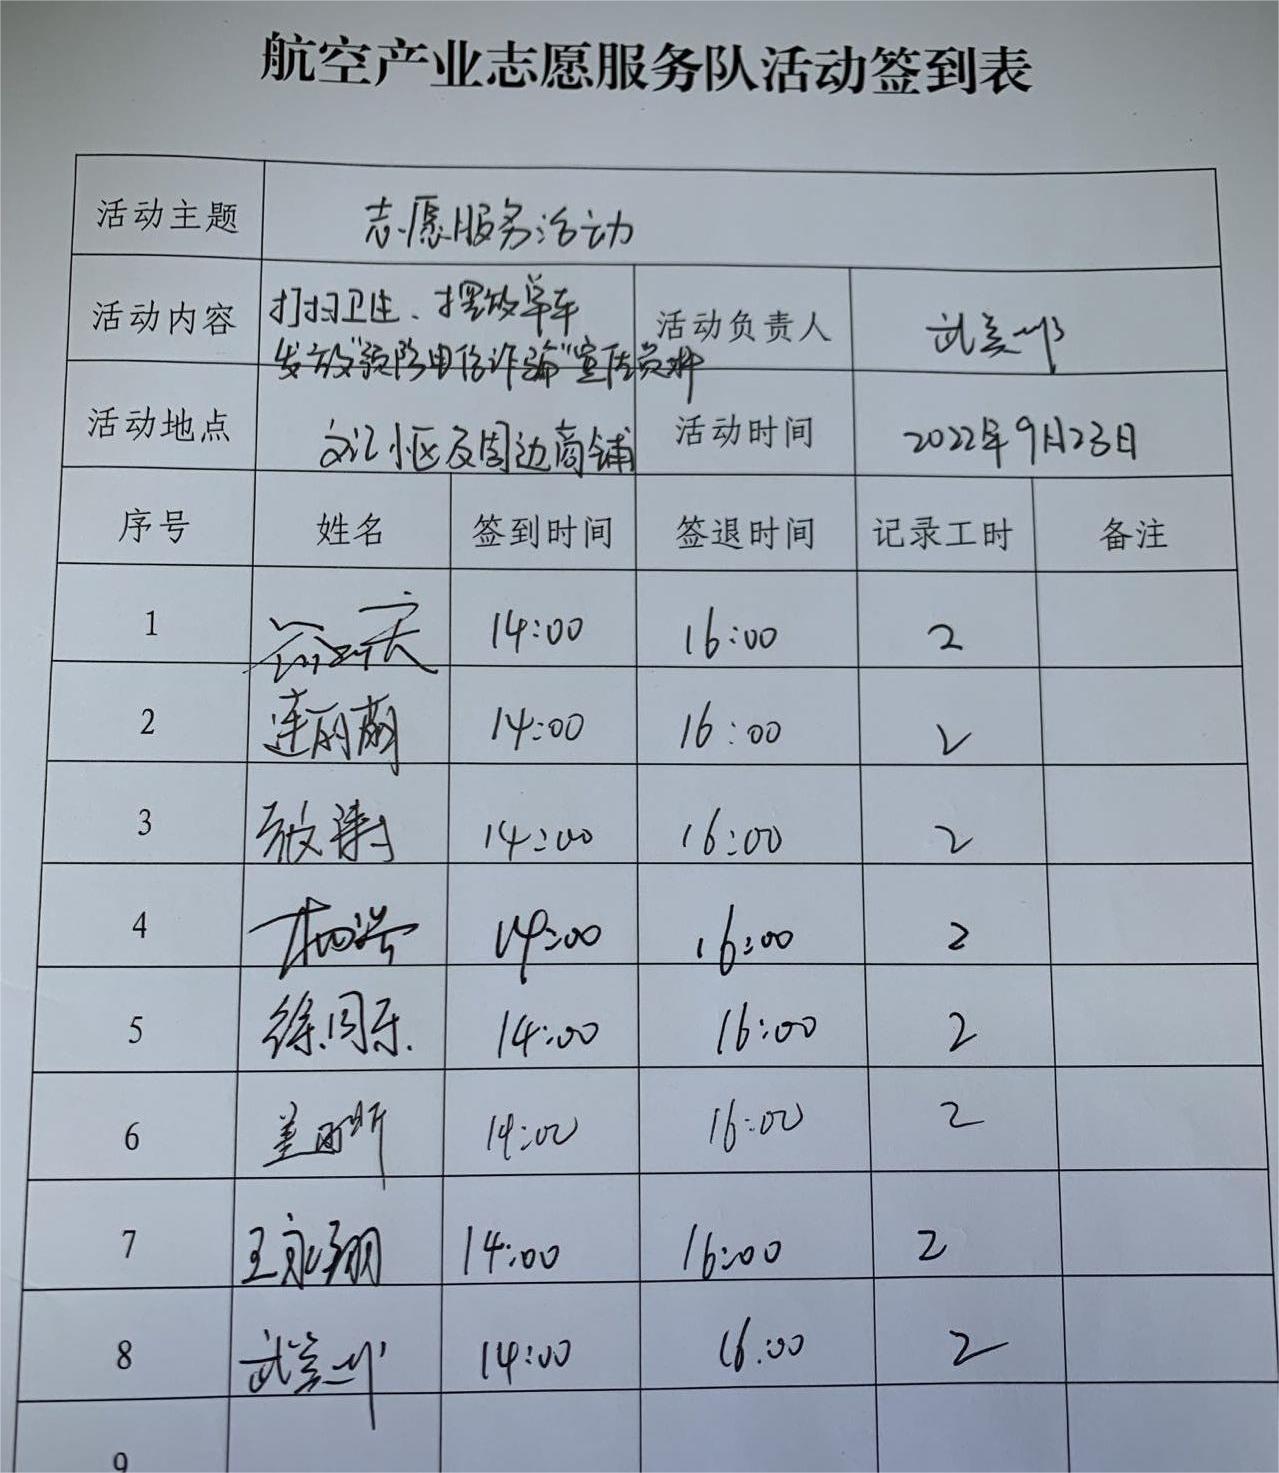 航空产业志愿服务队活动签到表
活动主题 志愿服务活动
活动内容 打扫卫生、摆放单车
发放"预防电信诈骗"宣传资料
活动负责人
活动地点 文汇小区及周边商铺 活动时间 2022年9月23日
序号 姓名 签到时间 签退时间 记录工时 备注
1 14:00 16:00 2
2 连丽萌 14:00 16:00 2
3 14:00 16:00 2
4 14:00 16:00 2
5 徐同乐 14:00 16:00 2
6 14:00 16:00 2
7 王永翔 14:00 16:00 2
8 14:00 16:00 2
9